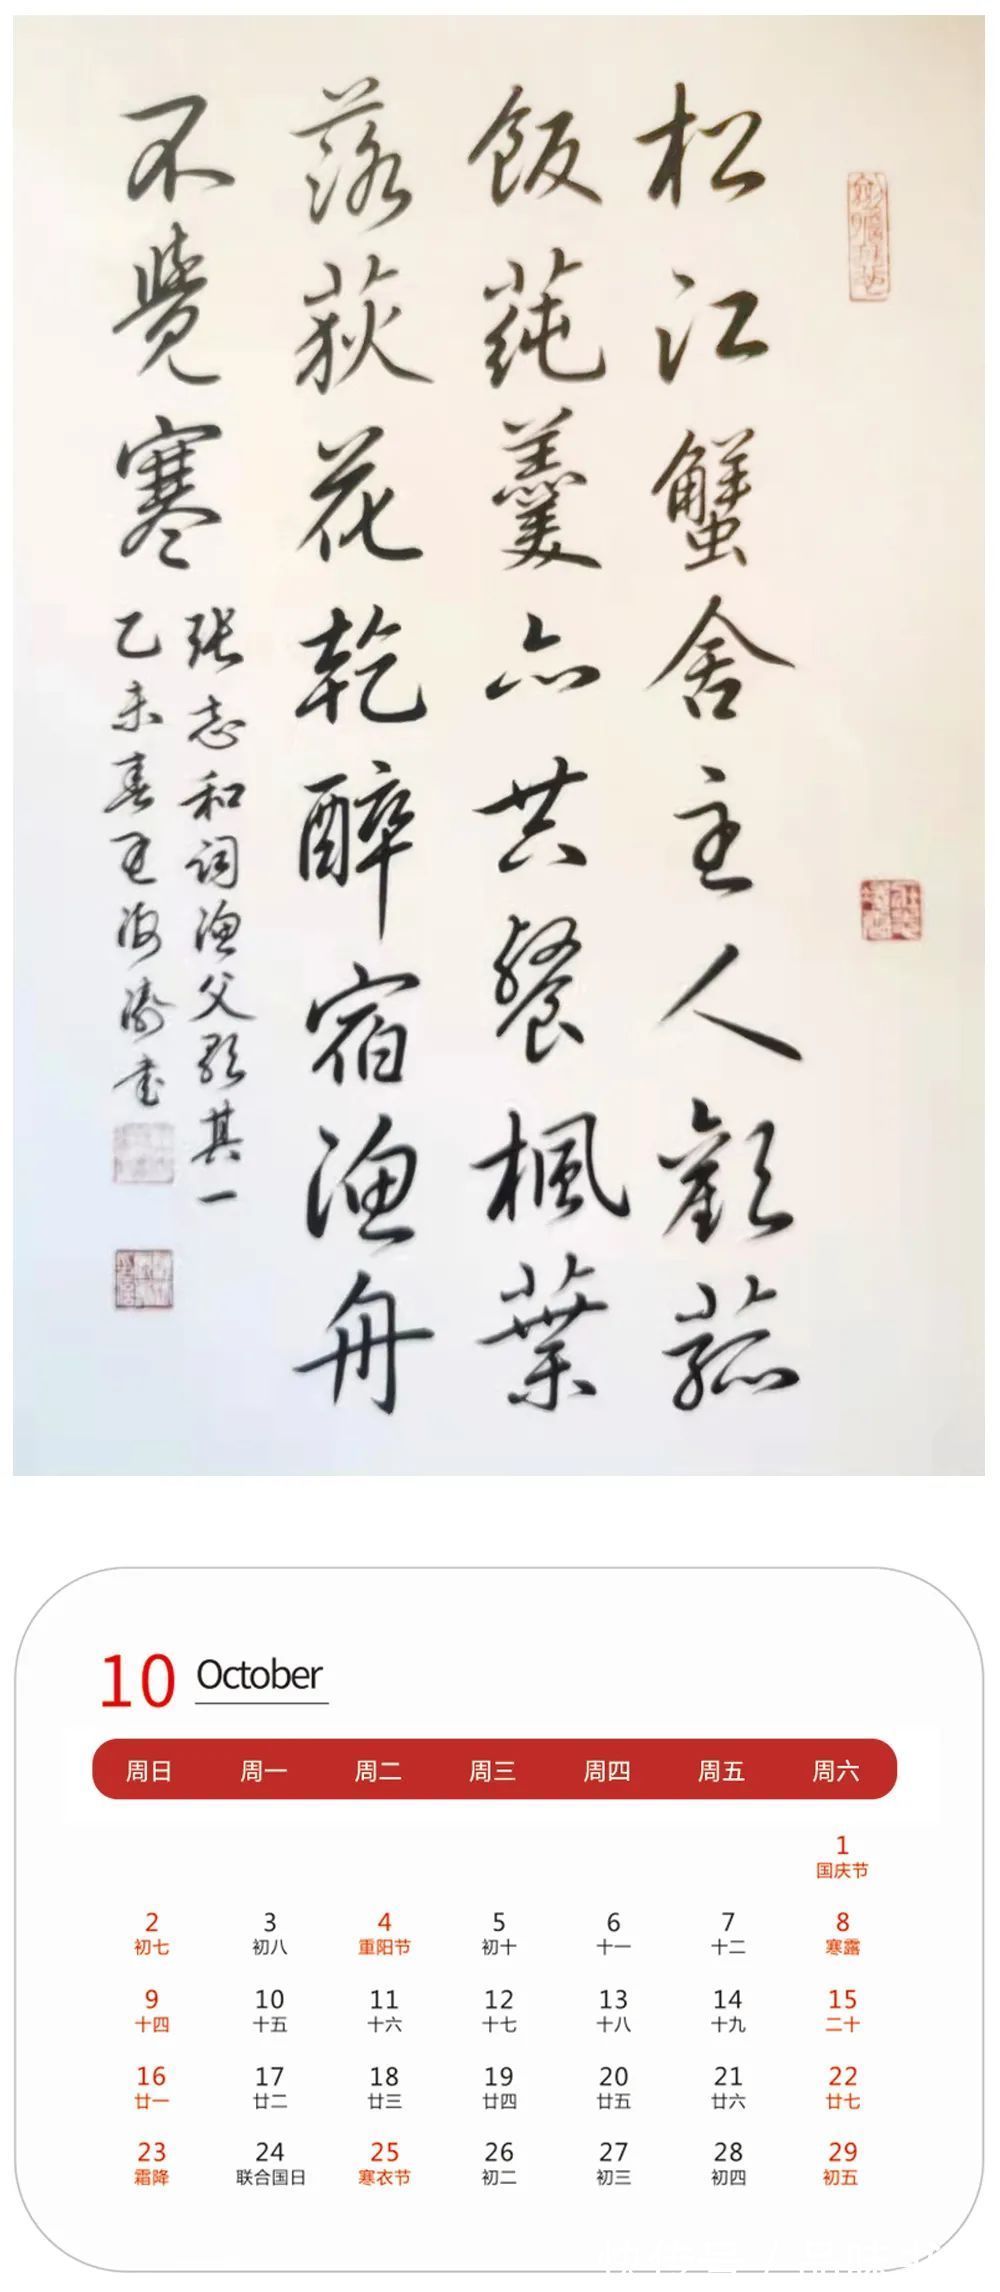 松江蟹舍主人歡菰
飯蒓羹亦共餐楓葉
落荻花乾醉宿漁舟
不覺寒
张志和词渔父歌其一
乙未春王海衡书
10 October
周日 周一 周二 周三 周四 周五 周六
1
国庆节
2 3 4 5 6 7 8
初七 初八 重阳节 初十 十一 十二 寒露
9 10 11 12 13 14 15
十四 十五 十六 十七 十八 十九 二十
16 17 18 19 20 21 22
廿一 廿二 廿三 廿四 廿五 廿六 廿七
23 24 25 26 27 28 29
霜降 联合国日 寒衣节 初二 初三 初四 初五